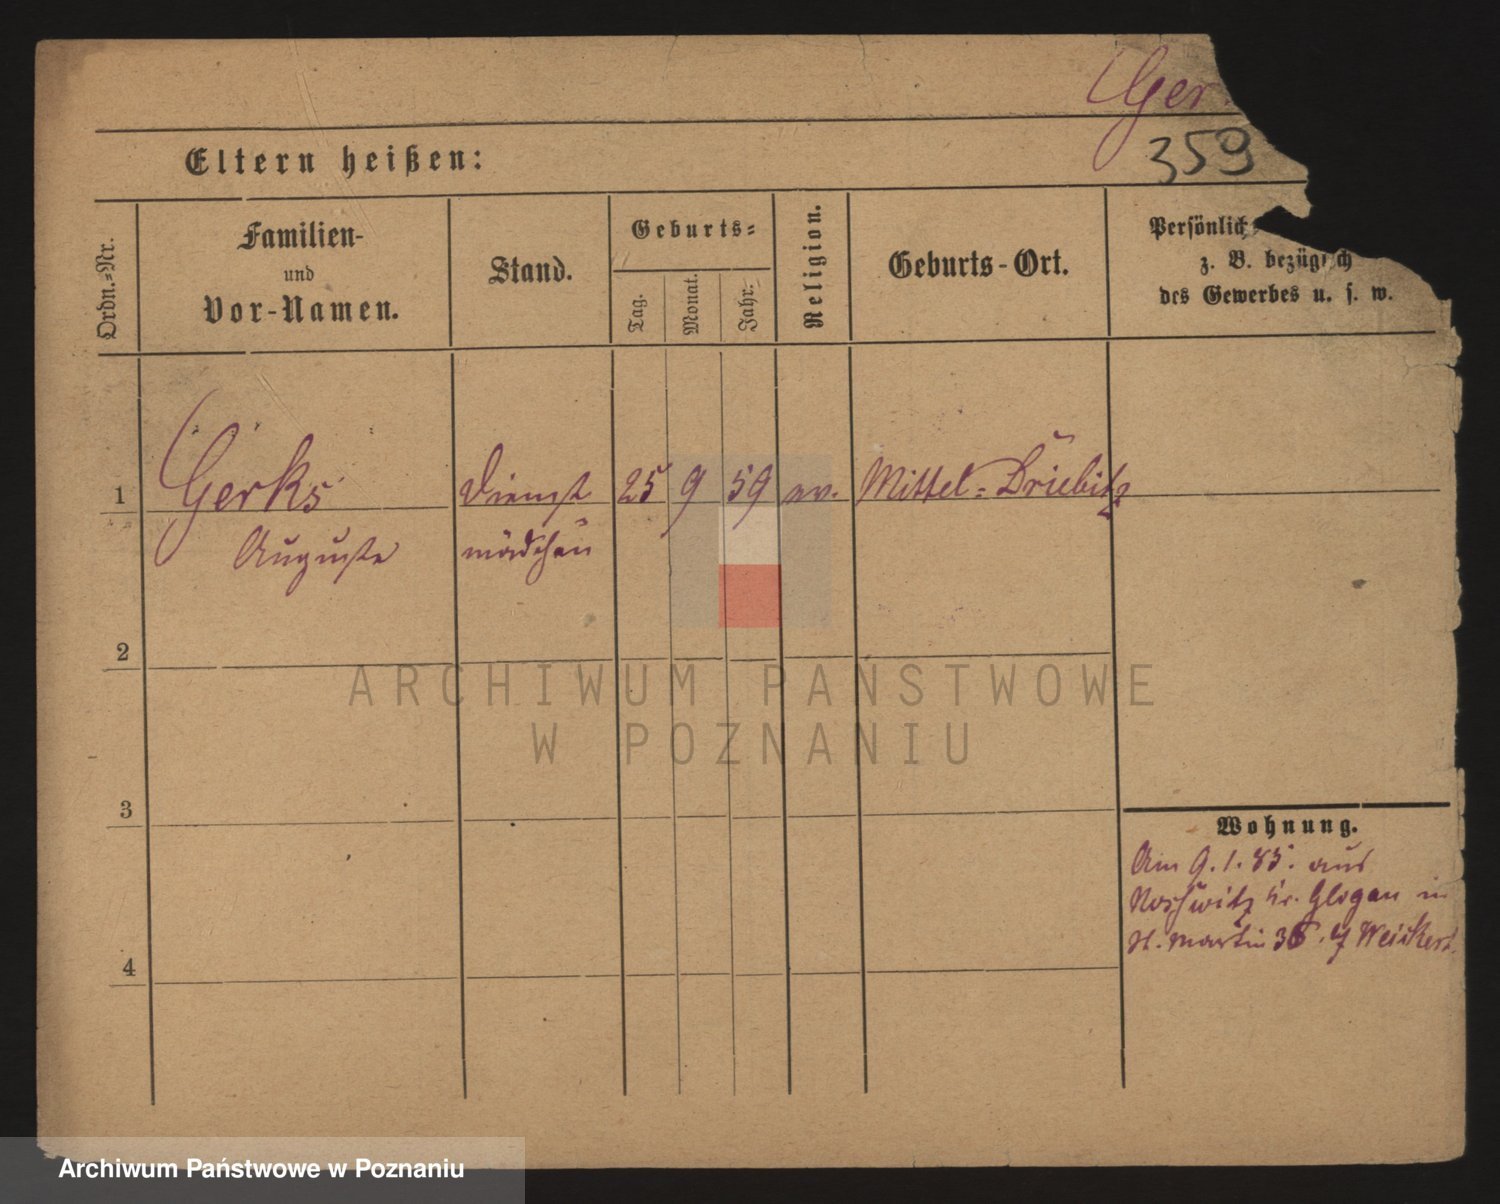 Ger
359
Eltern heißen:
Ordn.-Nr.
Familien-
und
Vor-Namen.
Stand.
Geburts-
Tag.
Monat.
Jahr.
Religion.
Geburts-Ort.
Persönlich
z. B. bezüglich
des Gewerbes u. s. w.
1
Gerks
Auguste
Dienst
mädchen
25
9
59
ev.
Mittel-Driebitz
2
3
4
Wohnung.
Am 9.1.85. aus
Noschwitz Kr. Glogau in
St. Martin 36. Weikert
ARCHIWUM PAŃSTWOWE
W POZNANIU
Archiwum Państwowe w Poznaniu